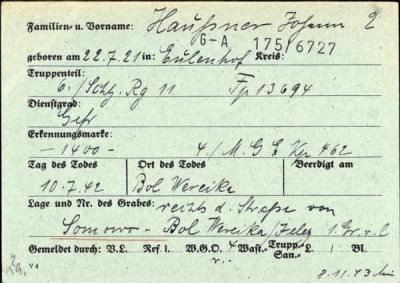 Familien- u. Vorname: Haußner Johann 2
G-A 175/6727
geboren am 22.7.21 in: Eulenhof Kreis:
Truppenteil:
6./Schtz. Rg 11 Fp 13694
Dienstgrad:
Gefr
Erkennungsmarke:
-1400- 4/M.G.E Kp 462
Tag des Todes Ort des Todes Beerdigt am
10.7.42 Bol Wereika
Lage und Nr. des Grabes: rechts d. Straße von
Somowo - Bol Wereika 1. Gr. v. l
Gemeldet durch: V.L. Ref. 1. W.G.O. 4 Wast.- Trupp- L. Bl.
San.-
8.11.43